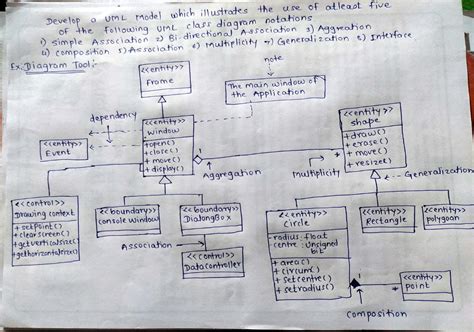 Develop a UML Model which illustrates the use of atleast five
of the following UML class diagram notations
1) Simple Association 2) Bi-directional Association 3) Aggreation
4) composition 5) Association 6) Multiplicity 7) Generalization 8) Interface
Ex: Diagram Tool:-
<<entity>>
Frame
note
The main window of
the Application
dependency
<<entity>>
Event
<<entity>>
window
+open()
+close()
+move()
+display()
<<entity>>
shape
+draw()
+erase()
+move()
+resize()
Aggregation
Multiplicity
*
Generalization
<<control>>
Drawing context
+setpoint()
+clearscreen()
+getverticalsize()
+gethorizontalsize()
<<boundary>>
console window
<<boundary>>
DialongBox
Association
<<control>>
DataController
<<entity>>
circle
-radius:float
centre:Unsigned
bit
+area()
+circum()
+setcentre()
+setradius()
<<entity>>
Rectangle
<<entity>>
polygoan
*
<<entity>>
point
composition